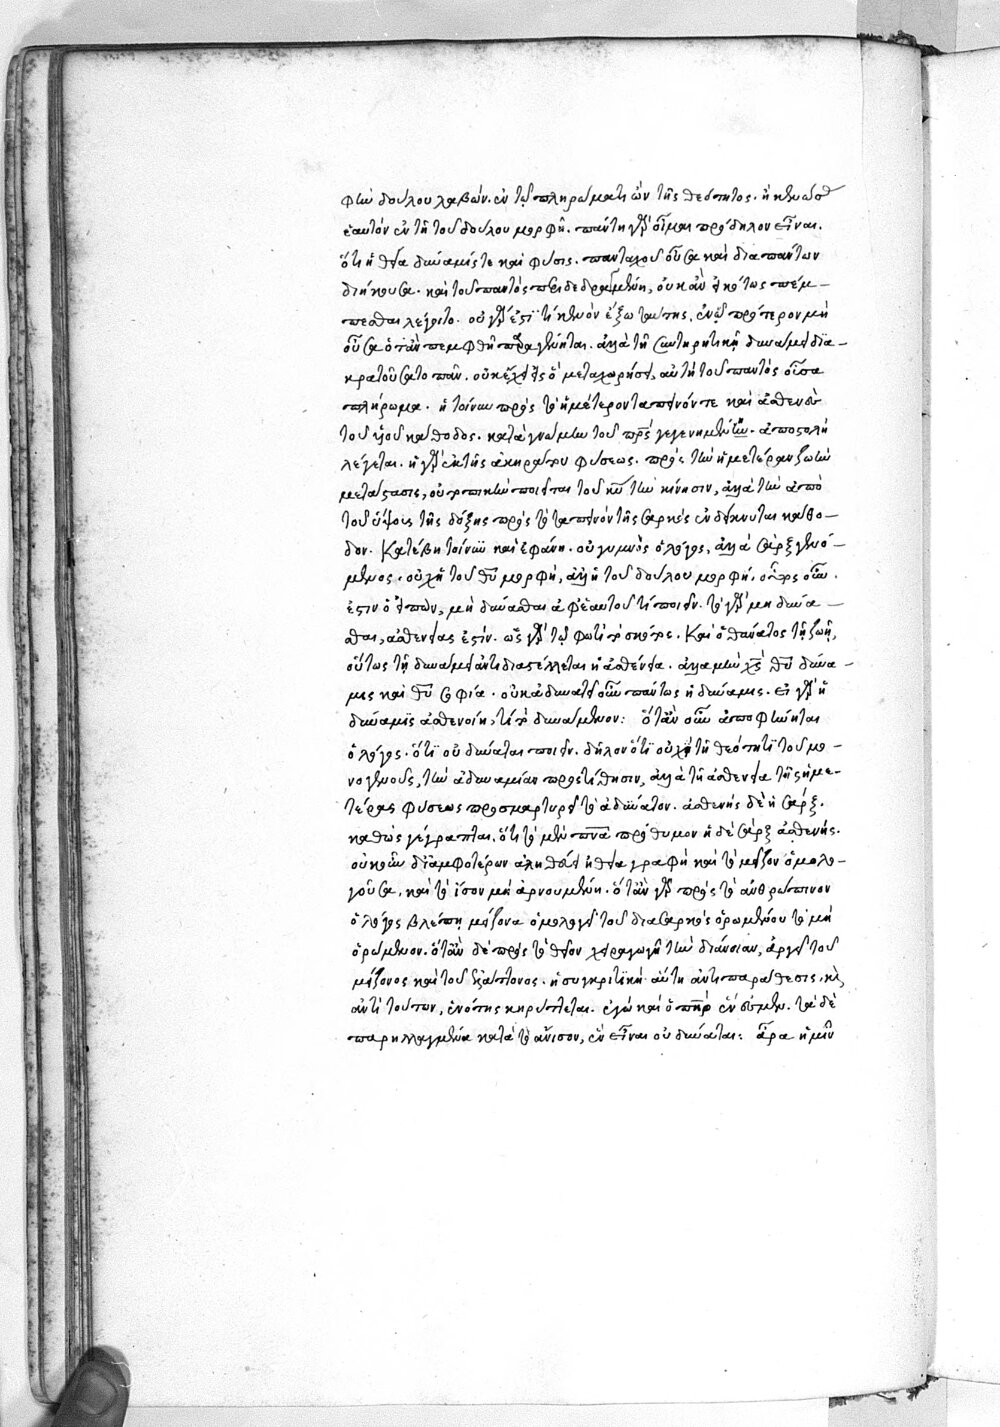 φὴν δούλου λαβών. ἐν τῷ πληρώματι ὢν τῆς θεότητος. ἢ κενώσας
ἑαυτὸν ἐν τῇ τοῦ δούλου μορφῇ. παντὶ γὰρ οἶμαι πρόδηλον εἶναι.
ὅτι ἡ θεία δύναμίς τε καὶ φύσις. πανταχοῦ οὖσα καὶ διαπάντων
διήκουσα. καὶ τοῦ παντὸς περιδεδραγμένη, οὐκ ἂν εἰκότως πέμ-
πεσθαι λέγοιτο. οὐ γὰρ ἐστί τι κενὸν ἔξω ταύτης, ἐν ᾧ πρότερον μὴ
οὖσα ὅταν πεμφθῇ παραγίνηται. ἀλλὰ τῇ συντηρητικῇ δυνάμει δια-
κρατοῦσα τὸ πᾶν. οὐκ ἔχει εἰς ὃ μεταχωρήσει, αὐτὴ τοῦ παντὸς οὖσα
πλήρωμα. ἡ τοίνυν πρὸς τὸ ἡμέτερον ταπεινόν τε καὶ ἀσθενὲς
τοῦ υἱοῦ κάθοδος. κατὰ γνώμην τοῦ πρς γεγενημένη. ἀποστολὴ
λέγεται. ἡ γὰρ ἐκ τῆς ἀκηράτου φύσεως. πρὸς τὴν ἡμετέραν ζωὴν
μετάστασις, οὐ τοπικὴν ποιεῖται τοῦ κυ τὴν κίνησιν, ἀλλὰ τὴν ἀπὸ
τοῦ ὕψους τῆς δόξης πρὸς τὸ ταπεινὸν τῆς σαρκὸς ἐνδείκνυται κάθο-
δον. Κατέβη τοίνυν καὶ ἐφάνη. οὐ γυμνὸς ὁ λόγος, ἀλλὰ σὰρξ γενό-
μενος. οὐχ ἡ τοῦ θυ μορφή, ἀλλ' ἡ τοῦ δούλου μορφή. οὗτος οὖν
ἐστιν ὁ εἰπών, μὴ δύνασθαι ἀφ' ἑαυτοῦ τι ποιεῖν. τὸ γὰρ μὴ δύνα-
σθαι, ἀσθενείας ἐστίν. ὡς γὰρ τῷ φωτὶ τὸ σκότος. Καὶ ὁ θάνατος τῇ ζωῇ,
οὕτως τῇ δυνάμει ἀντιδιαστέλλεται ἡ ἀσθένεια. ἀλλὰ μὴν χς θυ δύνα-
μις καὶ θυ σοφία. οὐκ ἀδυνατεῖ οὖν πάντως ἡ δύναμις. εἰ γὰρ ἡ
δύναμις ἀσθενοίη, τί τὸ δυνάμενον: ὅταν οὖν ἀποφαίνηται
ὁ λόγος. ὅτι οὐ δύναται ποιεῖν. δῆλον ὅτι οὐχὶ τῇ θεότητι τοῦ μο-
νογενοῦς, τὴν ἀδυναμίαν προστίθησιν, ἀλλὰ τῇ ἀσθενείᾳ τῆς ἡμε-
τέρας φύσεως προσμαρτυρεῖ τὸ ἀδύνατον. ἀσθενὴς δὲ ἡ σάρξ.
καθὼς γέγραπται. ὅτι τὸ μὲν πνα πρόθυμον ἡ δὲ σὰρξ ἀσθενής.
οὐκοῦν διαμφοτέρων ἀληθεύει ἡ θεία γραφὴ καὶ τὸ μεῖζον ὁμολο-
γοῦσα, καὶ τὸ ἴσον μὴ ἀρνουμένη. ὅταν γὰρ πρὸς τὸ ἀνθρώπινον
ὁ λόγος βλέπῃ μείζονα ὁμολογεῖ τοῦ διασαρκὸς ὁρωμένου τὸ μὴ
ὁρώμενον. ὅταν δὲ πρὸς τὸ θεῖον χειραγωγῇ τὴν διάνοιαν, ἀργεῖ τοῦ
μείζονος καὶ τοῦ ἐλάττονος. ἡ συγκριτικὴ αὕτη ἀντιπαράθεσις, καὶ
ἀντὶ τούτων, ἑνότης κηρύττεται. ἐγὼ καὶ ὁ πηρ ἕν ἐσμεν. τὰ δὲ
παρηλλαγμένα κατὰ τὸ ἄνισον, ἓν εἶναι οὐ δύναται: ἆρα ἡμῖν